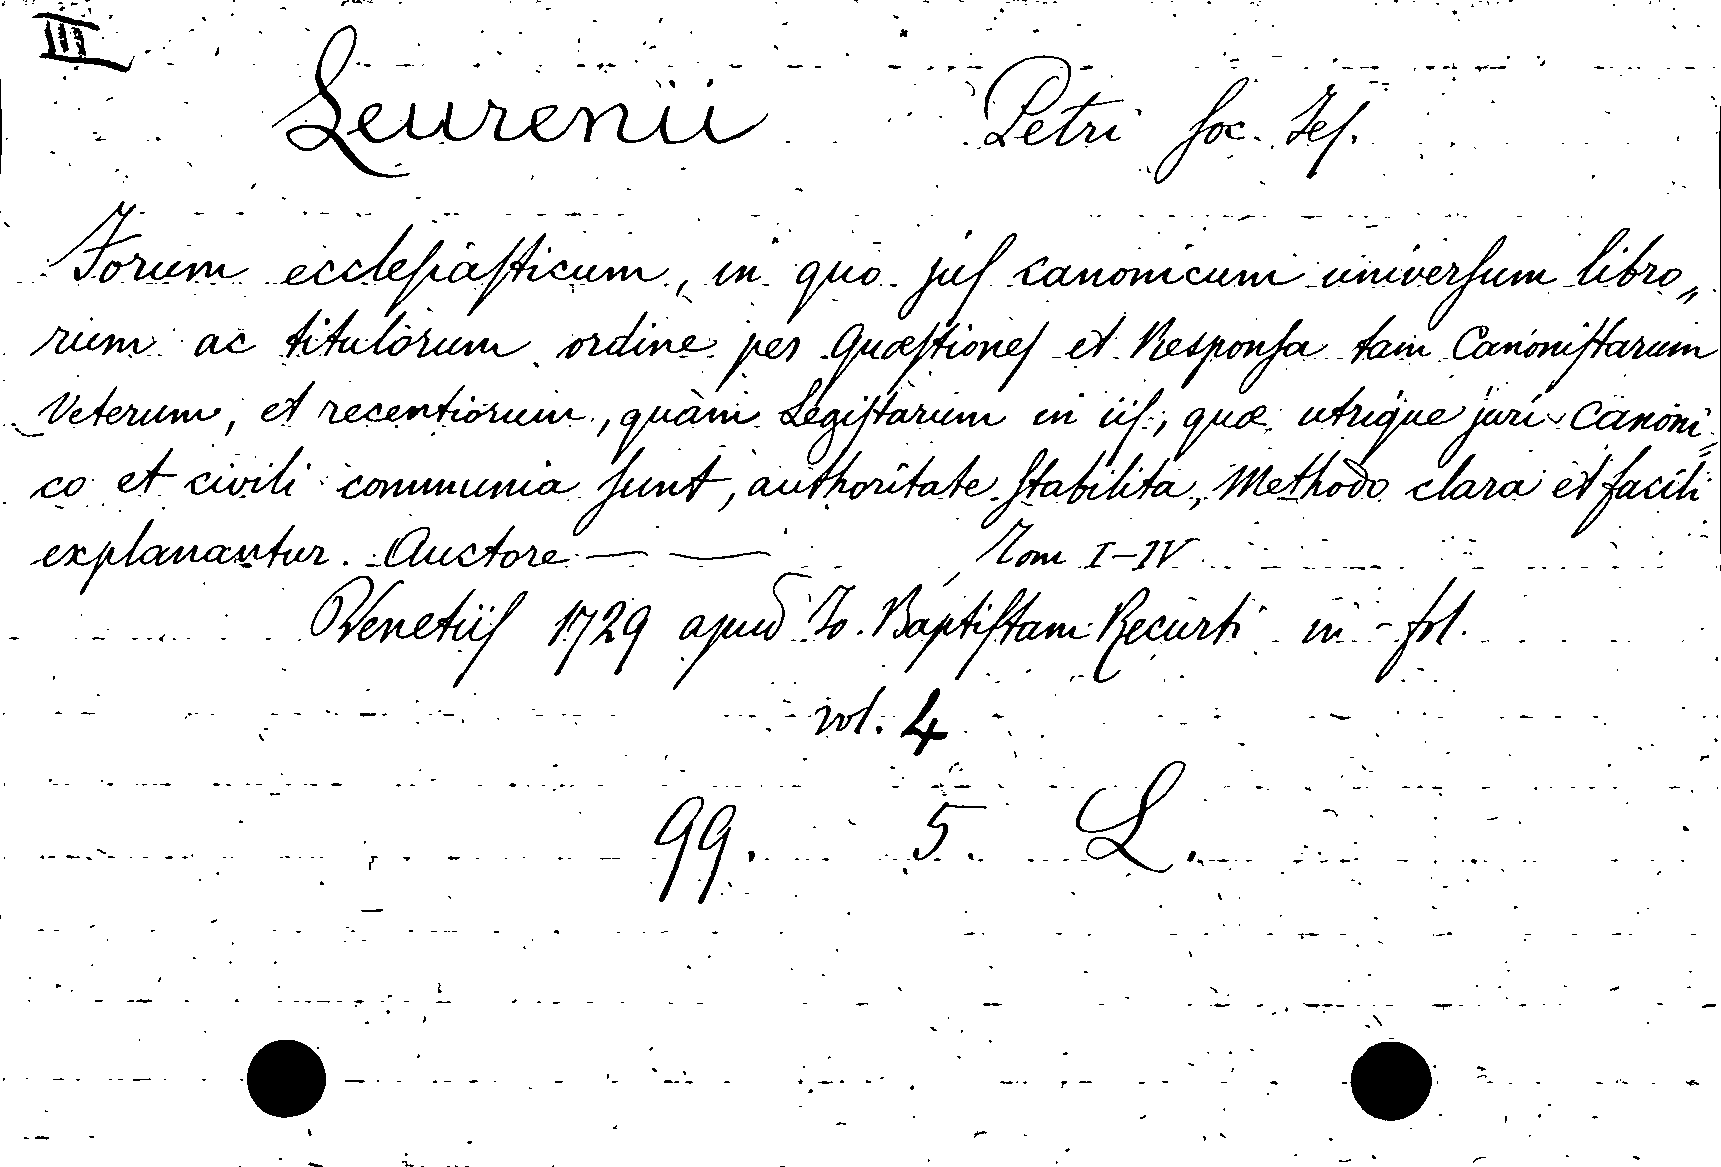 III
Leurenii Petri Soc. Jeſ.
Forum eccleſiaſticum, in quo juſ canonicum univerſum libro„
rum ac titulorum ordine per Quæſtioneſ et Responſa tam Canoniſtarum
Veterum, et recentiorum, quàm Legiſtarum in iiſ, quæ utrique juri Canoni„
co et civili communia ſunt, authoritate ſtabilita, Methodo clara et facili
explanantur. Auctore — — Tom I-IV
Venetiiſ 1729 apud Jo. Baptiſtam Recurti in - fol.
vol. 4
99. 5. L.